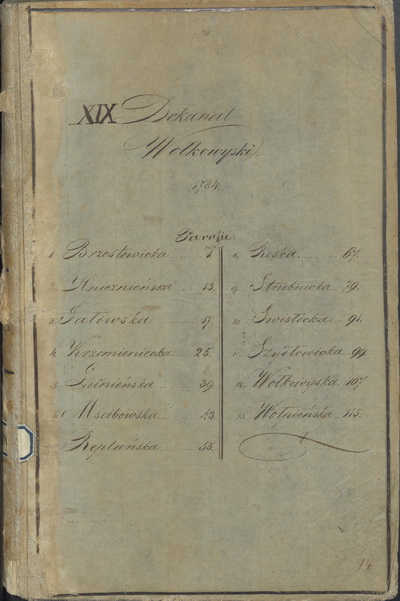 XIX Dekanat
Wołkowyski.
1784.
Parafie
1. Brzostowicka 1.
2. Hnieznieńska 13.
3. Jałowska 17.
4. Krzemienicka 25.
5. Łunieńska 39.
6. Mscibowska 43
Replańska 53.
8. Roska 67.
9. Strubnicka 79.
10. Swisłocka 91.
11. Szydłowicka 99.
12. Wołkowyska 107.
13. Wołpieńska 115.